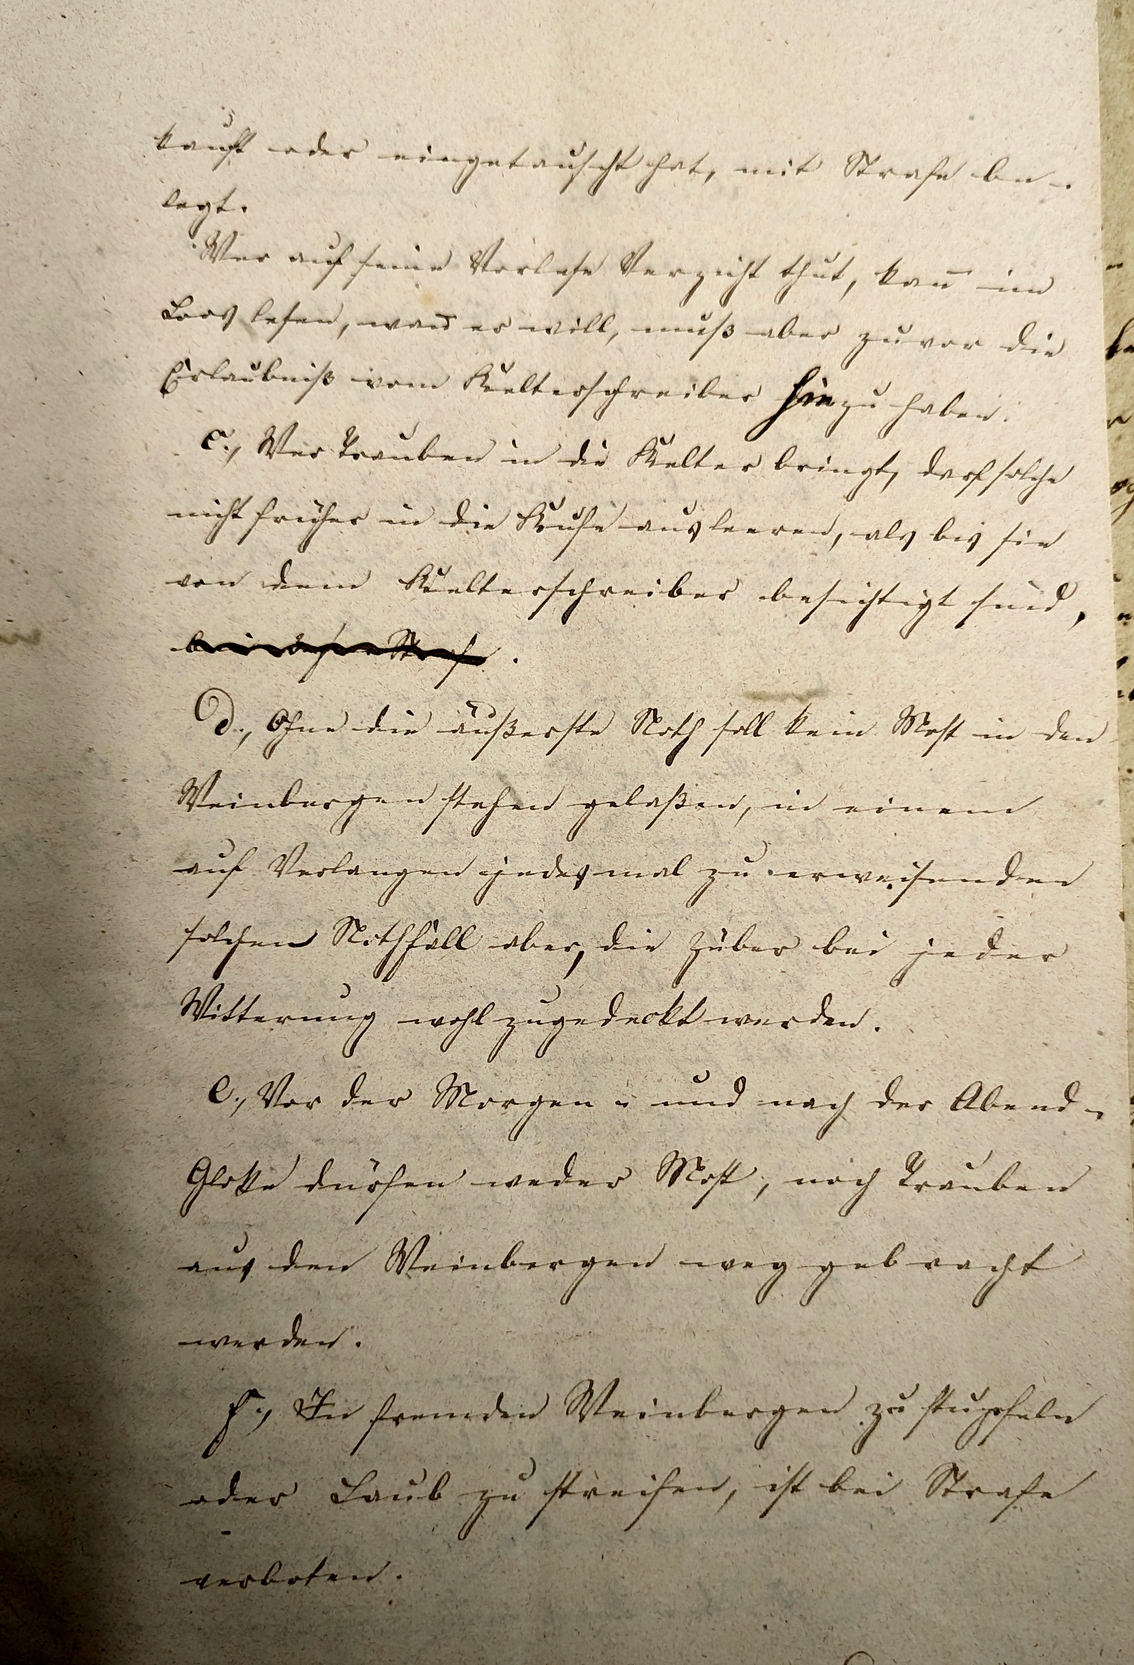 kauft oder eingetauscht hat, mit Strafe be-
legt.
Wer auf seine Vorlese Verzicht thut, kan̄ im
Loos lesen, wan̄ er will, muß aber zuvor die
Erlaubniß vom Kelterschreiber hiezu haben.
c., Wer Trauben in die Kelter bringt, darf solche
nicht früher in die Kufe ausleeren, als bis sie
von dem Kelterschreiber besichtigt sind,
d., Ohne die äußerste Noth soll kein Most in den
Weinbergen stehen gelaßen, in einem
auf Verlangen jedesmal zu erweisenden
solchen Nothfall aber, die Züber bei jeder
Witterung wohl zugedeckt werden.
e., Vor der Morgen- und nach der Abend-
Gloke dürfen weder Most, noch Trauben
aus den Weinbergen weg gebracht
werden.
f., In fremden Weinbergen zu stupfeln
oder Laub zu streifen, ist bei Strafe
verboten.